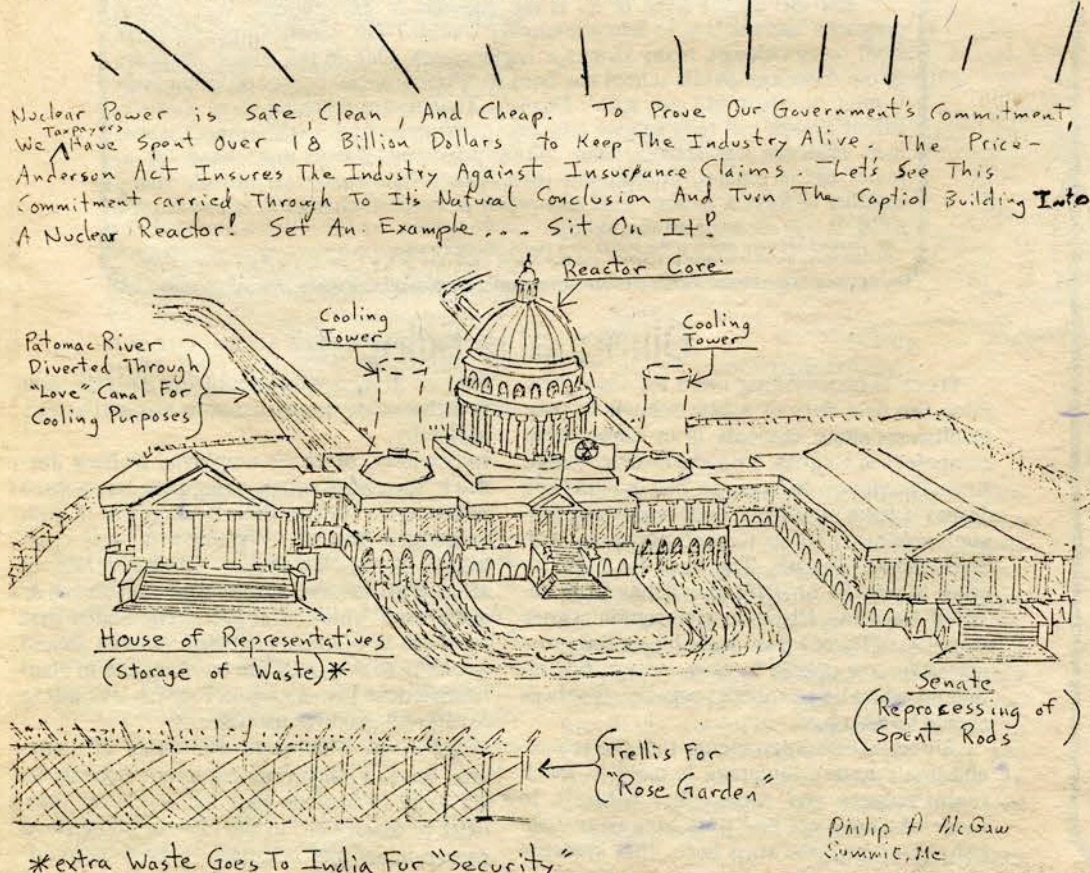 Nuclear Power is Safe, Clean, And Cheap. To Prove Our Government's Commitment,
We Taxpayers Have Spent Over 18 Billion Dollars to Keep The Industry Alive. The Price-
Anderson Act Insures The Industry Against Insurance Claims. Let's See This
Commitment carried Through To Its Natural Conclusion And Turn The Captiol Building Into
A Nuclear Reactor! Set An Example... Sit On It!
Reactor Core
Cooling
Tower
Cooling
Tower
Patomac River
Diverted Through
"Love" Canal For
Cooling Purposes
House of Representatives
(Storage of Waste)*
Senate
(Reprocessing of
Spent Rods)
Trellis For
"Rose Garden"
Philip A McGaw
Summit, Me
*extra Waste Goes To India Fur "Security"